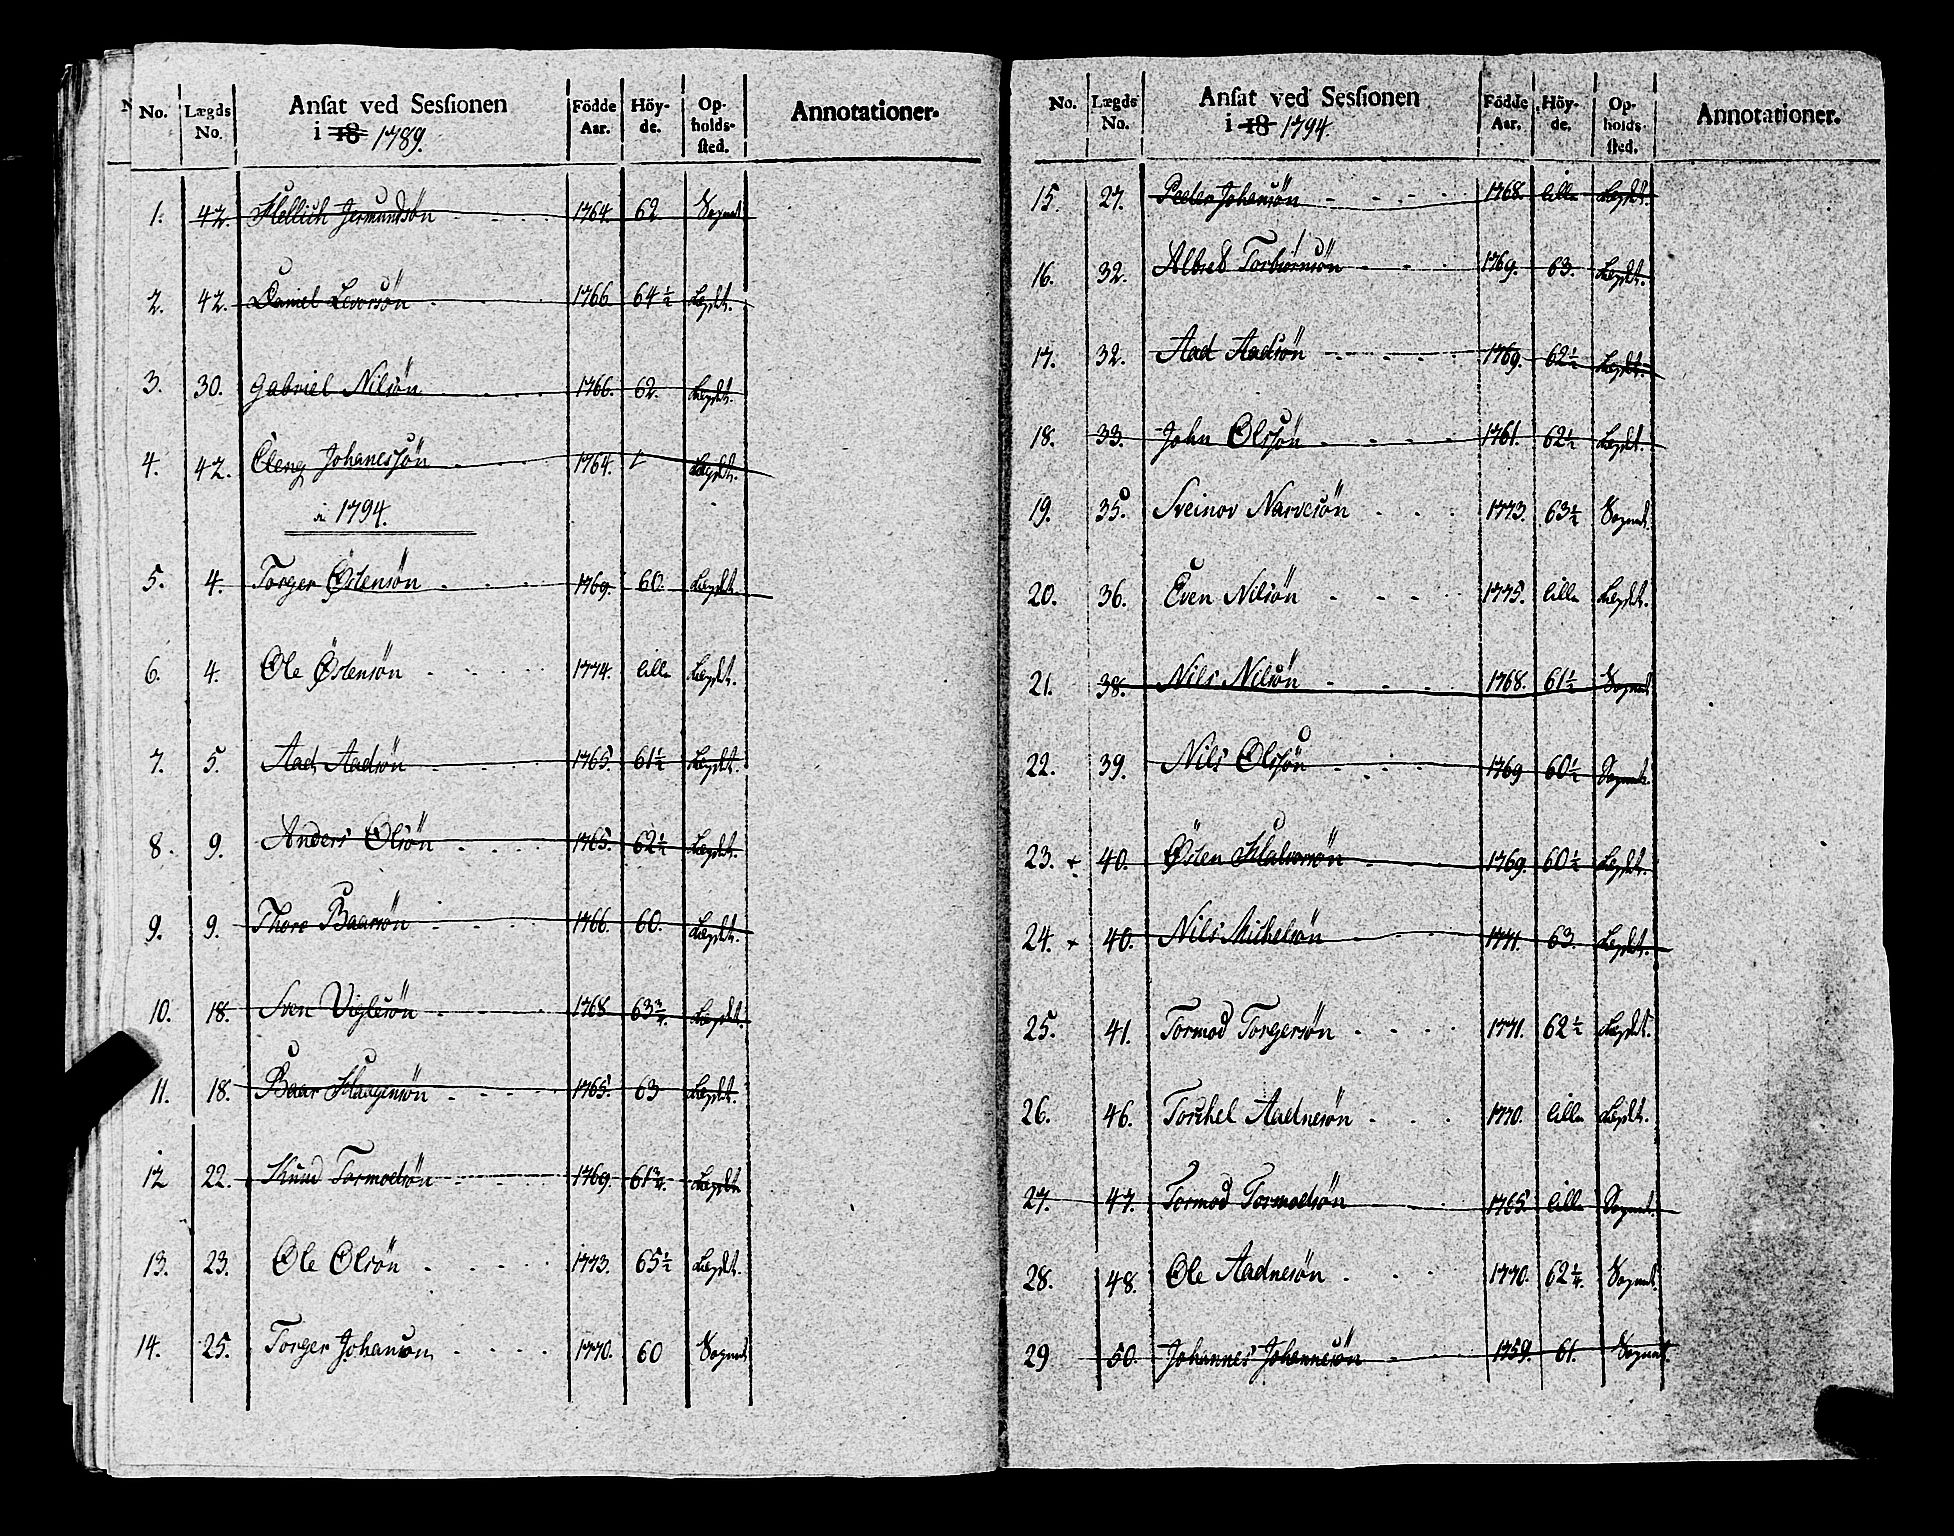 No. Lægds No. Ansat ved Sessionen i 18 1789. Födde Aar. Höy-de. Op-holds-sted. Annotationer.
1. 42. Hellich Jermundsön 1764. 62 Sognet
2. 42. Daniel Levorsön 1766 64½ Legdet.
3. 30. Gabriel Nilsön 1766. 62. Legdet.
4. 42. Eleng Johanessön 1764. Legdet.
i 1794.
5. 4. Torger Östensön 1769. 60. Legdet.
6. 4. Ole Östensön 1774. lille Legdet.
7. 5. Aad Aadsön 1765. 61½ Legdet.
8. 9. Anders Olsön 1765. 62½ Legdet.
9. 9. Thore Baarsön 1766. 60. Legdet.
10. 18. Sven Viglesön 1768 63¾. Legdet.
11. 18. Baar Haagensön 1765. 63 Legdet.
12 22. Knud Tormodsön 1769. 61¾. Legdet.
13. 23. Ole Olsön 1773. 65½ Legdet.
14. 25. Torger Johansön 1770. 60 Sognet
No. Lægds No. Ansat ved Sessionen i 18 1794. Födde Aar. Höy-de. Op-holds-sted. Annotationer.
15. 27. Peder Johansön 1768. lille Legdet.
16. 32. Albret Torbiörnsön 1769. 63. Legdet.
17. 32. Aad Aadsön 1769. 62½ Legdet.
18. 33. John Olssön 1761. 62½ Legdet.
19. 35. Sveinov Narvesön 1773. 63½ Sognet.
20. 36. Even Nilsön 1775. lille Legdet.
21. 38. Nils Nilsön 1768. 61½ Sognet
22. 39. Nils Olssön 1769 60½ Sognet.
23. + 40. Östen Halvorsön 1769. 60½ Legdet.
24. + 40. Nils Michelsön 1771. 63. Legdet.
25. 41. Tormod Torgersön 1771. 62½ Legdet.
26. 46. Torchel Aadnesön 1770. lille Legdet.
27. 47. Tormod Tormodsön 1765. lille Sognet.
28. 48. Ole Aadnesön 1770. 62¼. Sognet.
29 50. Johannes Johannesön 1759. 61. Sognet.